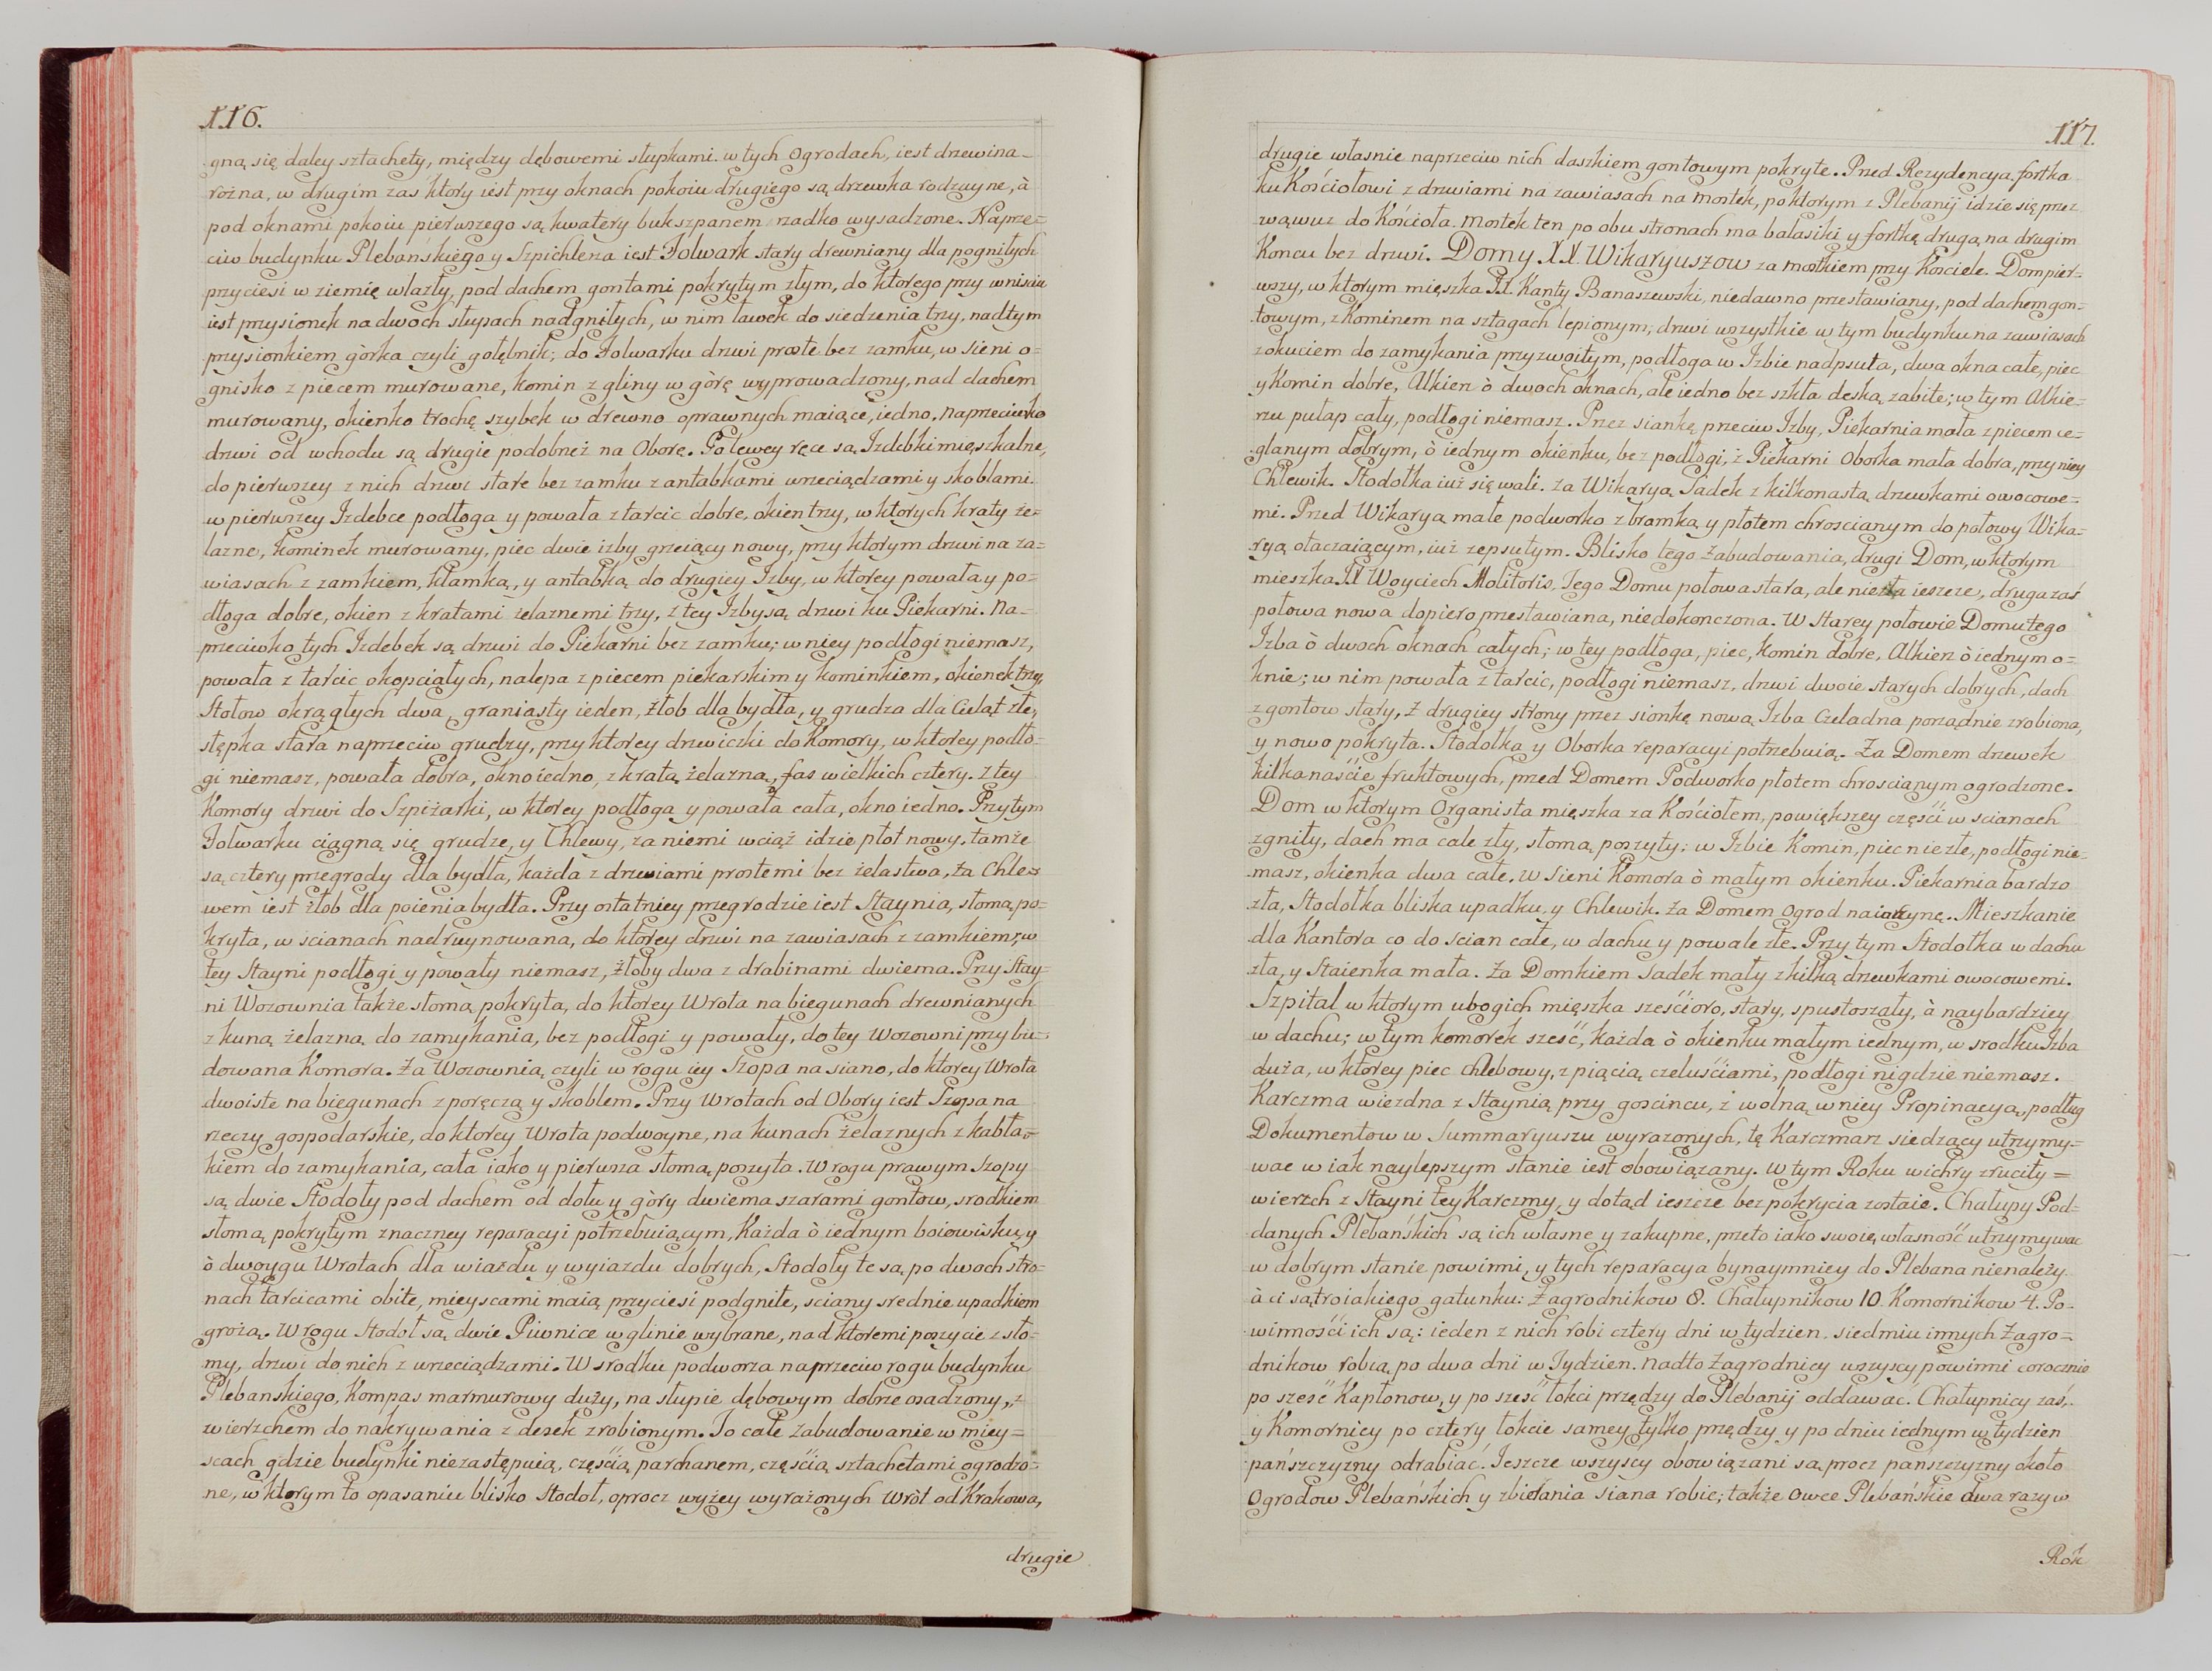 116.
gną się daley sztachety, między dębowemi słupkami. w tych Ogrodach, iest drzewina-
rożna, w drugim zaś ktory iest przy oknach pokoiu drugiego są drzewka rodzayne, à
pod oknami pokoiu pierwszego są kwatery bukszpanem rzadko wysadzone. Naprze=
ciw budynku Plebańskiego y Szpichlerza iest Folwark stary drewniany dla pogniłych
przyciesi w ziemię wlazły, pod dachem gontami pokrytym złym, do ktorego przy wniściu
iest przysionek na dwoch słupach nadgniłych, w nim ławek do siedzenia trzy, nad tym
przysionkiem gòrka czyli gołębnik; do Folwarku drzwi proste bez zamku, w sieni o=
gnisko z piecem murowane, komin z gliny w gòrę wyprowadzony, nad dachem
murowany, okienko trochę szybek w drewno oprawnych maiące, iedno. Naprzeciwko
drzwi od wchodu są drugie podobneż na Oborę. Po lewey ręce są Izdebki mięszkalne,
do pierwszey z nich drzwi stare bez zamku z antabkami wrzeciądzami y skoblami.
w pierwszey Izdebce podłoga y powała z tarcic dobre, okien trzy, w ktorych kraty że=
lazne, kominek murowany, piec dwie izby grzeiący nowy, przy ktorym drzwi na za=
wiasach z zamkiem, klamką, y antabką do drugiey Izby, w ktorey powała y po=
dłoga dobre, okien z kratami żelaznemi trzy, z tey Izby są drzwi ku Piekarni. Na=
przeciwko tych Izdebek są drzwi do Piekarni bez zamku; w niey podłogi niemasz,
powała z tarcic okopciałych, nalepa z piecem piekarskim y kominkiem, okienek trzy,
Stołow okrągłych dwa, graniasty ieden, żłob dla bydła, y grudza dla Cieląt złe,
stępka stara naprzeciw grudzy, przy ktorey drzwiczki do Komory, w ktorey podło=
gi niemasz, powała dobra, okno iedno, z kratą żelazną, fas wielkich cztery. Z tey
Komory drzwi do Szpiżarki, w ktorey podłoga y powała cała, okno iedno. Przy tym
Folwarku ciągną się grudze, y Chlewy, za niemi wciąż idzie płot nowy, tamże
są cztery przegrody dla bydła, każda z drzwiami prostemi bez żelastwa, za Chle=
wem iest żłob dla poienia bydła. Przy ostatniey przegrodzie iest Staynia, słomą po=
kryta, w scianach nadruynowana, do ktorey drzwi na zawiasach z zamkiem, w
tey Stayni podłogi y powały niemasz, żłoby dwa z drabinami dwiema. Przy Stay=
ni Wozownia także słomą pokryta, do ktorey Wrota na biegunach drewnianych
z kuną żelazną do zamykania, bez podłogi y powały, do tey Wozowni przybu=
dowana Komora. Za Wozownią czyli w rogu iey Szopa na siano, do ktorey Wrota
dwoiste na biegunach z poręczą y skoblem. Przy Wrotach od Obory iest Szopa na
rzeczy gospodarskie, do ktorey Wrota podwoyne, na kunach żelaznych z kabłą=
kiem do zamykania, cała iako y pierwsza słomą poszyta. W rogu prawym Szopy
są dwie Stodoły pod dachem od dołu y gòry dwiema szarami gontow, srodkiem
słomą pokrytym znaczney reparacyi potrzebuiącym, Każda ò iednym boiowisku, y
ò dwoygu Wrotach dla wiazdu y wyiazdu dobrych, Stodoły te są po dwoch stro=
nach tarcicami obite, mieyscami maią przyciesi podgniłe, sciany srednie upadkiem
grożą. W rogu Stodoł są dwie Piwnice w glinie wybrane, nad ktoremi poszycie z sło=
my, drzwi do nich z wrzeciądzami. W srodku podworza naprzeciw rogu budynku
Plebanskiego, Kompas marmurowy duży, na słupie dębowym dobrze osadzony, z
wierzchem do nakrywania z desek zrobionym. To całe Zabudowanie w miey=
scach gdzie budynki niezastępuią, częścią parchanem, częścią sztachetami ogrodzo=
ne, w ktorym to opasaniu blisko Stodoł, oprocz wyżey wyrażonych Wròt od Krakowa,
drugie
117.
drugie własnie naprzeciw nich daszkiem gontowym pokryte. Przed Rezydencyą fortka
ku Kościołowi z drzwiami na zawiasach na mostek, po ktorym z Plebanij idzie się przez
wąwuz do Kościoła. Mostek ten po obu stronach ma balasiki y fortkę drugą na drugim
Koncu bez drzwi. Domy XX. Wikaryuszow za mostkiem przy Kościele. Dom pier=
wszy, w ktorym mięszka JX. Kanty Banaszewski, niedawno przestawiany, pod dachem gon=
towym, z Kominem na sztagach lepionym; drzwi wszystkie w tym budynku na zawiasach
z okuciem do zamykania przyzwoitym, podłoga w Izbie nadpsuta, dwa okna całe, piec
y Komin dobre, Alkierz ò dwoch oknach, ale iedno bez szkła deską zabite; w tym Alkie=
rzu pułap cały, podłogi niemasz. Przez sianke, przeciw Izby, Piekarnia mała z piecem ce=
glanym dobrym, ò iednym okienku, bez podłogi, z Piekarni Oborka mała dobra, przy niey
Chlewik. Stodołka iuż się wali. Za Wikaryą Sadek z kilkonastą drzewkami owocowe=
mi. Przed Wikaryą małe podworko z bramką y płotem chroscianym do połowy Wika=
ryą otaczaiącym, iuż zepsutym. Blisko tego Zabudowania, drugi Dom, w ktorym
mieszka JX Woyciech Molitoris, Tego Domu połowa stara, ale niezła ieszcze, druga zaś
połowa nowa dopiero przestawiana, niedokonczona. W Starey połowie Domu tego
Izba ò dwoch oknach całych; w tey podłoga, piec, komin dobre, Alkierz ò iednym o=
knie; w nim powała z tarcic, podłogi niemasz, drzwi dwoie starych dobrych, dach
z gontow stary, z drugiey strony przez sionkę nową Izba Czeladna porządnie zrobiona,
y nowo pokryta. Stodołka y Oborka reparacyi potrzebuią. Za Domem drzewek
kilkanaście fruktowych, przed Domem Podworko płotem chroscianym ogrodzone.
Dom w ktorym Organista mięszka za Kościołem, powiększey części w scianach
zgniły, dach ma cale zły, słomą poszyty; w Izbie Komin, piec niezłe, podłogi nie=
masz, okienka dwa całe. w Sieni Komora ò małym okienku. Piekarnia bardzo
zła, Stodołka bliska upadku, y Chlewik. Za Domem Ogrod na iarzynę. Mieszkanie
dla Kantora co do scian całe, w dachu y powale złe. Przy tym Stodołka w dachu
zła, y Staienka mała. Za Domkiem Sadek mały z kilką drzewkami owocowemi.
Szpital w ktorym ubogich mięszka sześcioro, stary, spustoszały, à naybardziey
w dachu; w tym komorek sześć, każda ò okienku małym iednym, w srodku Izba
duża, w ktorey piec chlebowy, z piącią czeluściami, podłogi nigdzie niemasz.
Karczma wiezdna z Staynią przy goscincu, z wolną w niey Propinacyą, podług
Dokumentow w Summaryuszu wyrażonych, tę Karczmarz siedzący utrzymy=
wać w iak naylepszym stanie iest obowiązany. W tym Roku wichry zruciły=
wierzch z Stayni tey Karczmy, y dotąd ieszcze bez pokrycia zostaie. Chałupy Pod=
danych Plebańskich są ich własne y zakupne, przeto iako swoię własność utrzymywać
w dobrym stanie powinni, y tych reparacya bynaymniey do Plebana nienależy.
à ci są troiakiego gatunku: Zagrodnikow 8. Chałupnikow 10. Komornikow 4. Po-
winności ich są: ieden z nich robi cztery dni w tydzien. siedmiu innych Zagro=
dnikow robią po dwa dni w Tydzien. Nadto Zagrodnicy wszyscy powinni corocznie
po sześć Kapłonow, y po sześć łokci przędzy do Plebanij oddawać. Chałupnicy zaś,
y Komornicy po cztery łokcie samey tylko przędzy, y po dniu iednym w tydzien
pańszczyzny odrabiać. Ieszcze wszyscy obowiązani są procz pańszczyzny około
Ogrodow Plebańskich y zbierania siana robić; także Owce Plebańskie dwa razy w
Rok